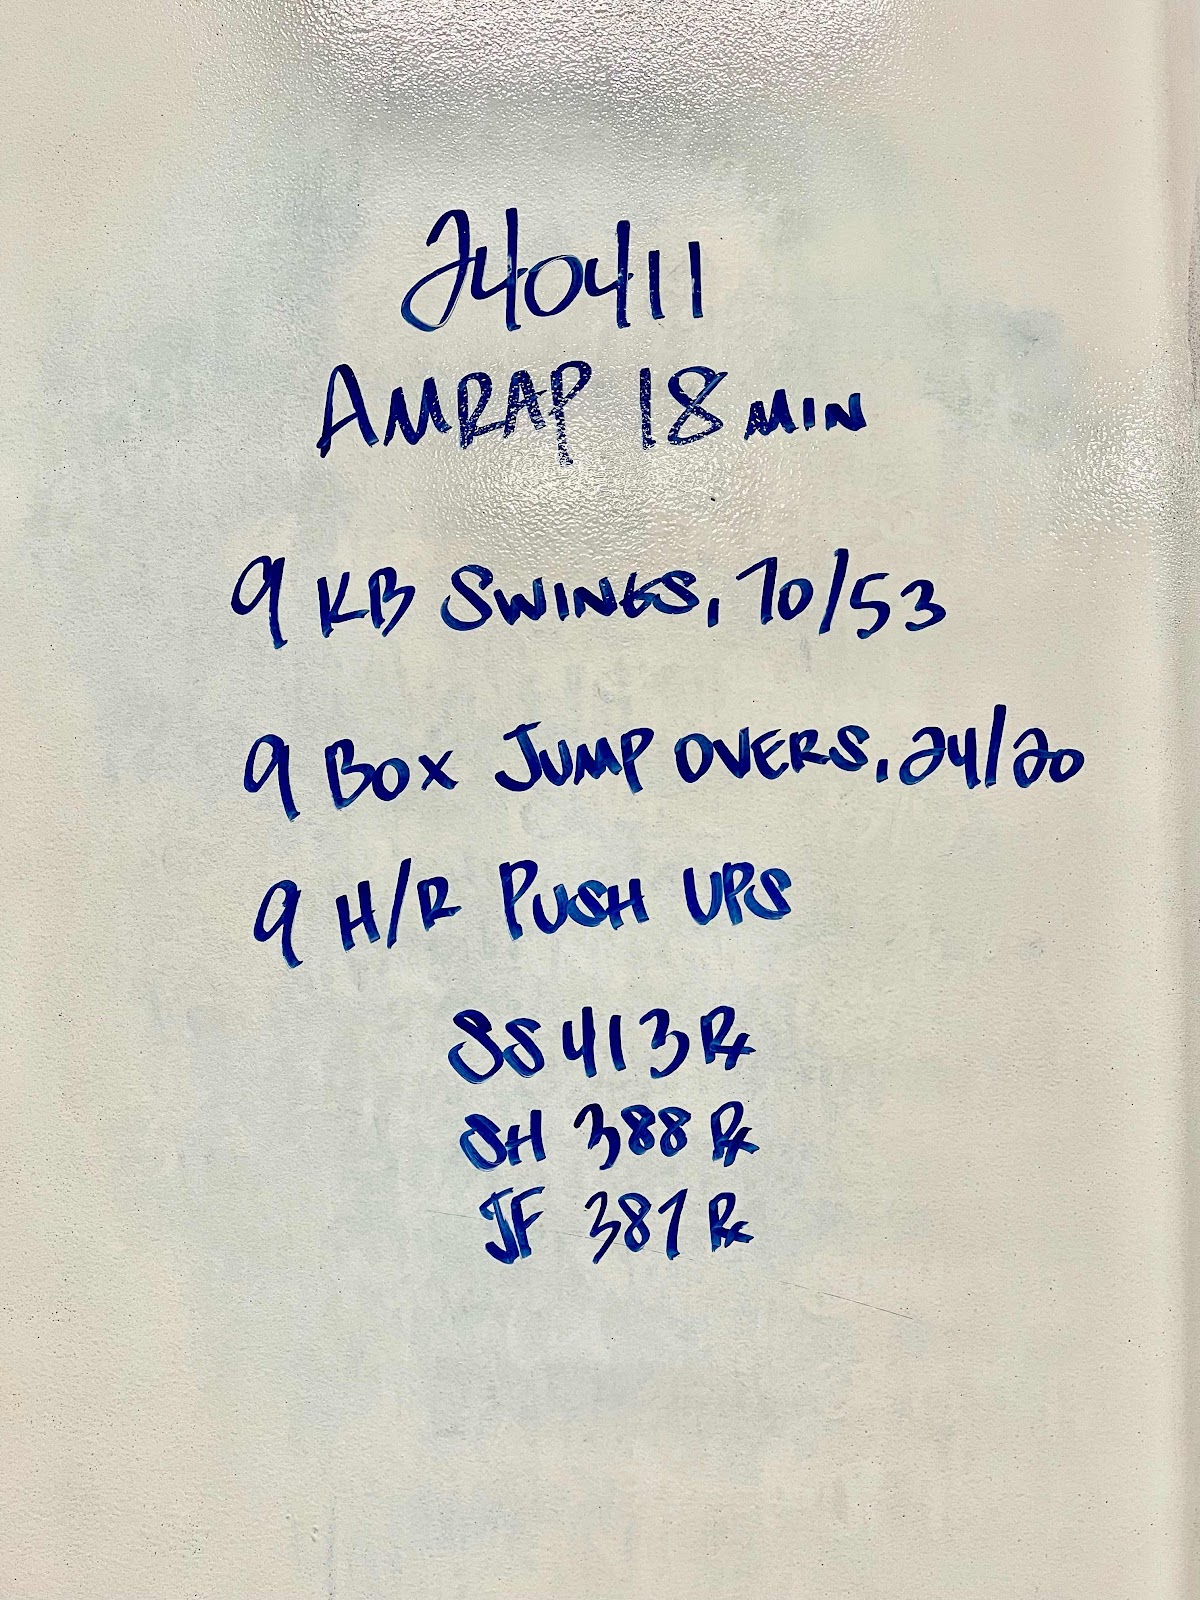 240411
AMRAP 18 MIN
9 KB SWINGS, 70/53
9 BOX JUMP OVERS, 24/20
9 H/R PUSH UPS
SS 413 Rx
SH 388 Rx
JF 387 Rx